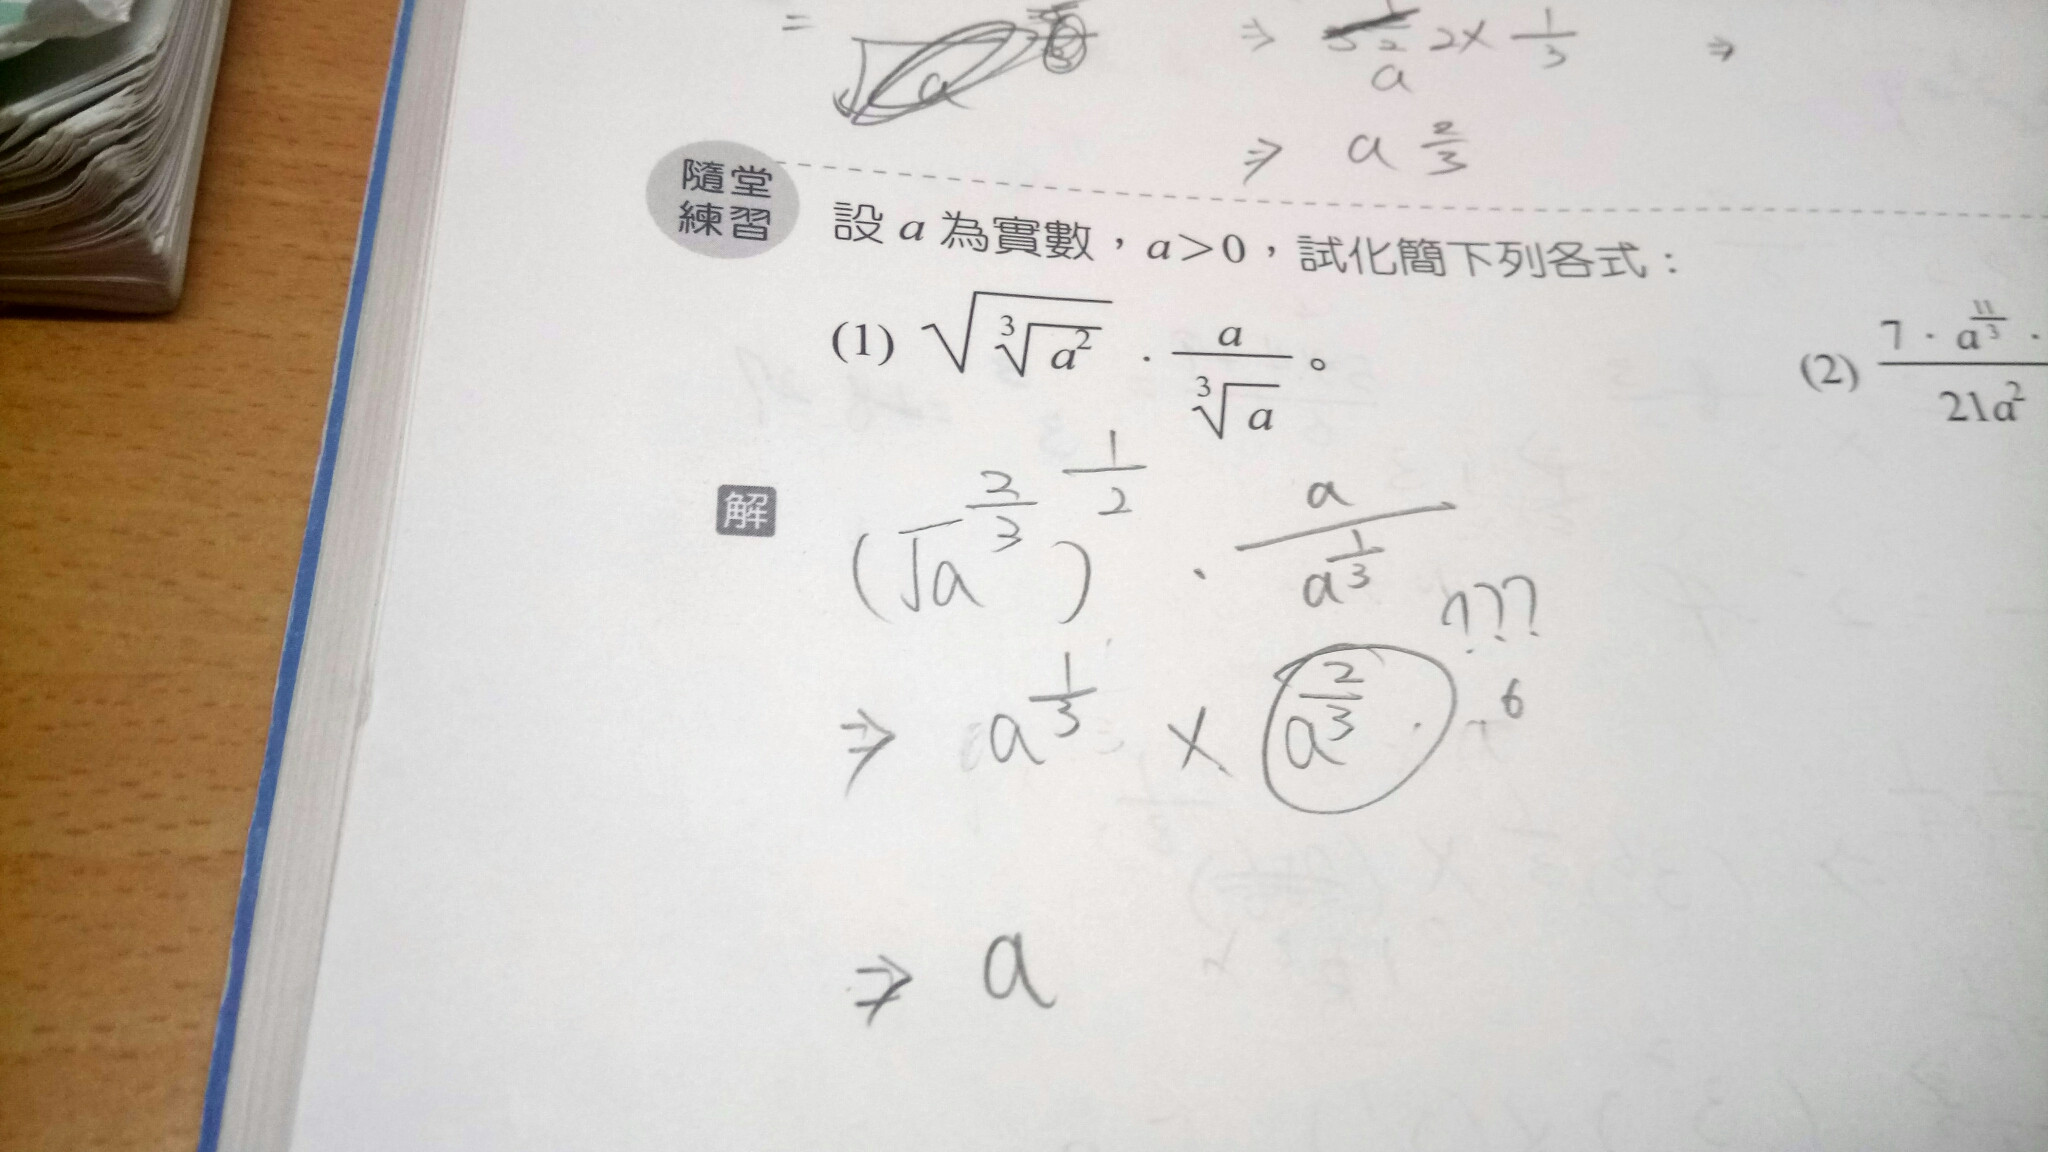 =
a
⇒ 2× 1/3 ⇒
a
⇒ a^(2/3)
隨堂
練習
設 a 為實數，a>0，試化簡下列各式：
(1) √(∛(a²)) · a/∛a 。
(2) 7 · a^(11/3) · / 21a²
解
(√a^(2/3))^(1/2) · a/a^(1/3)
???
⇒ a^(1/3) × a^(2/3) . 6
⇒ a